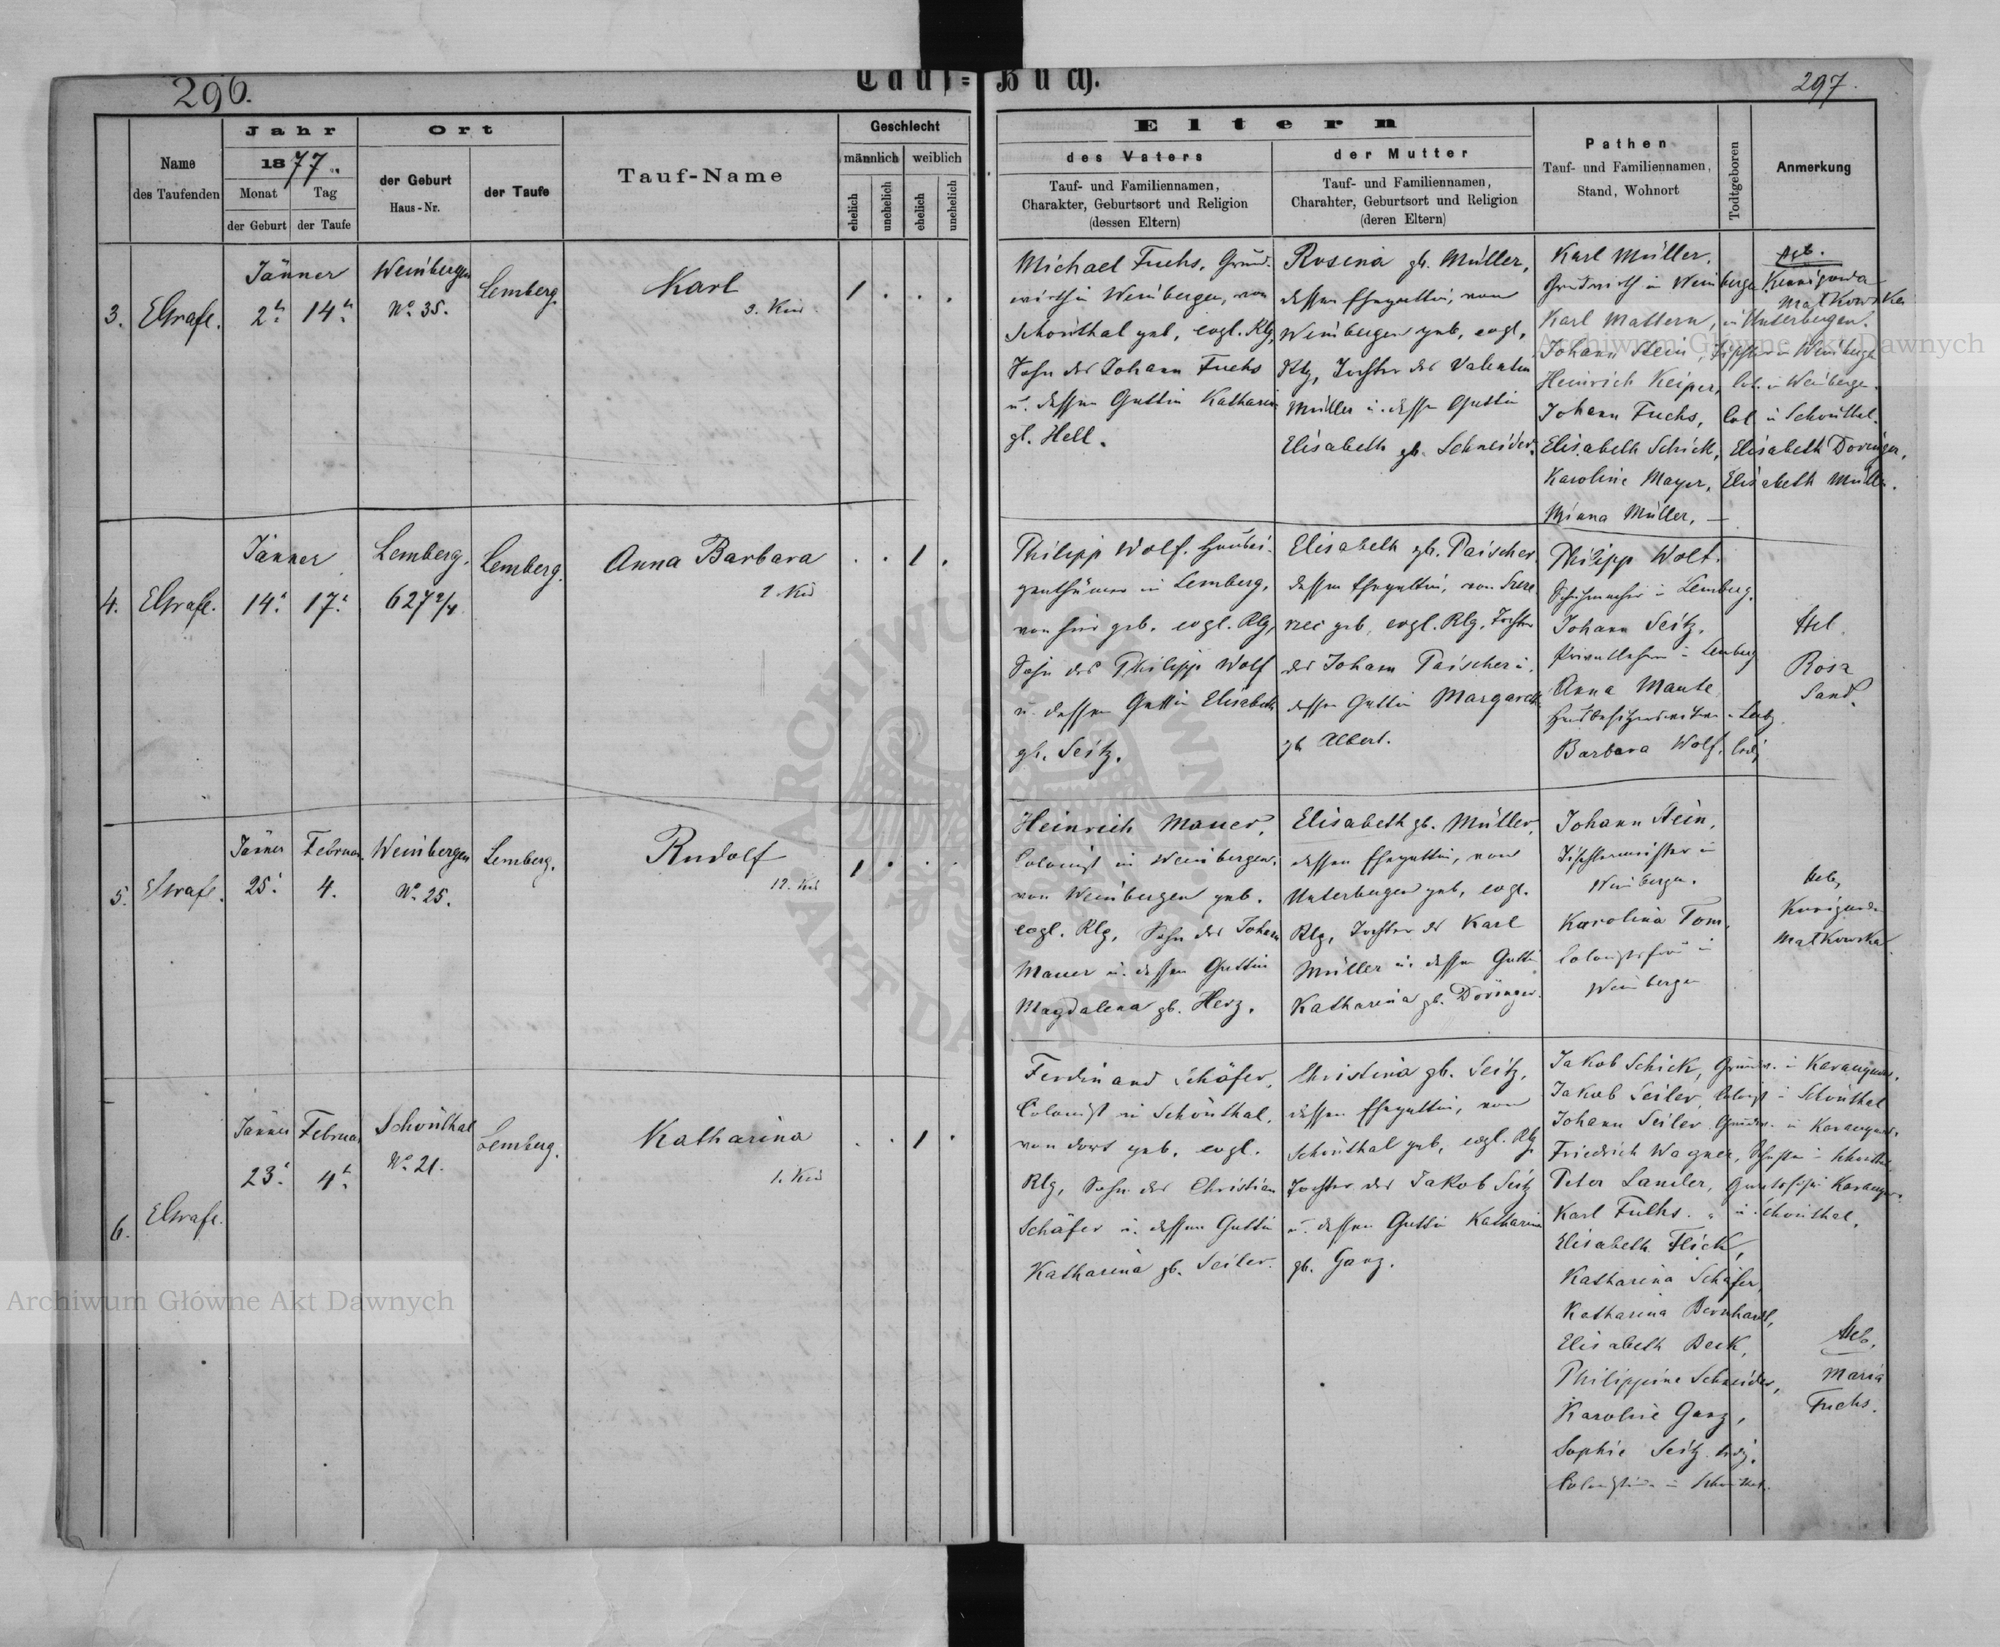 296.
Tauf-Buch.
297.
Name
des Taufenden
Jahr
1877
Monat
der Geburt
Tag
der Taufe
Ort
der Geburt
Haus-Nr.
der Taufe
Tauf-Name
Geschlecht
männlich
weiblich
ehelich
unehelich
ehelich
unehelich
Eltern
des Vaters
Tauf- und Familiennamen,
Charakter, Geburtsort und Religion
(dessen Eltern)
der Mutter
Tauf- und Familiennamen,
Charahter, Geburtsort und Religion
(deren Eltern)
Pathen
Tauf- und Familiennamen,
Stand, Wohnort
Todtgeboren
Anmerkung
3.
EGrafl.
Jänner
2.
14.
Weinbergen
No. 35.
Lemberg.
Karl
3. Kind
1 . . .
Michael Fuchs, Grund-
wirth in Weinbergen, von
Schönthal geb., evgl. Rlg,
Sohn des Johann Fuchs
u. dessen Gattin Katharina
gb. Hell.
Rosina gb. Müller,
dessen Ehegattin, von
Weinbergen geb., evgl.
Rlg, Tochter des Valentin
Müller u. dessen Gattin
Elisabeth gb. Schneider.
Karl Müller,
Grundwirth in Weinbergen
Karl Mattern, in Unterbergen.
Johann Stein, Tischler in Weinbergen
Heinrich Keiper, Col. in Weinbergen.
Johann Fuchs, Col. in Schönthal.
Elisabeth Schick, Elisabeth Doringer,
Karoline Mayer, Elisabeth Müller.
Miana Müller. —
Heb.
Kunigunda
Matkowska
4.
EGrafl.
Jänner
14.
17.
Lemberg.
627 2/4
Lemberg.
Anna Barbara
2. Kind
. . 1 .
Philipp Wolf, Hausei-
genthümer in Lemberg,
von hier geb. evgl. Rlg,
Sohn des Philipp Wolf
u. dessen Gattin Elisabeth
gb. Seitz.
Elisabeth gb. Paischer,
dessen Ehegattin, von
geb, evgl. Rlg, Tochter
des Johann Paischer u.
dessen Gattin Margareth
gb Albert.
Philipp Wolf.
Schuhmacher in Lemberg.
Johann Seitz,
Privatlehrer in Lemberg
Anna Mante
Barbara Wolf. ledig
Heb.
Rosa
Sand.
5.
EGrafl.
Jänner
25.
Februar
4.
Weinbergen
No. 25.
Lemberg.
Rudolf
12. Kind
1 . . .
Heinrich Mauer,
Colonist in Weinbergen,
von Weinbergen geb.
evgl. Rlg, Sohn des Johann
Mauer u. dessen Gattin
Magdalena gb. Herz.
Elisabeth gb. Müller,
dessen Ehegattin, von
Unterbergen geb, evgl.
Rlg, Tochter des Karl
Müller u. dessen Gattin
Katharina gb. Döringer.
Johann Stein,
Tischlermeister in
Weinbergen.
Karolina Tom,
Colonistsfrau in
Weinbergen
Heb,
Kunigunda
Matkowska
6.
EGrafl.
Jänner
23.
Februar
4.
Schönthal
No. 21.
Lemberg.
Katharina
1. Kind
. . 1 .
Ferdinand Schäfer,
Colonist in Schönthal,
von dort geb. evgl.
Rlg, Sohn des Christian
Schäfer u. dessen Gattin
Katharina gb. Seiler.
Christina gb. Seitz,
dessen Ehegattin, von
Schönthal geb, evgl. Rlg
Tochter des Jakob Seitz
u. dessen Gattin Katharina
gb. Ganz.
Jakob Schick, Grundw. in
Jakob Seiler, Colonist in Schönthal
Johann Seiler Grundw. in
Friedrich Wagner, in Schönthal
Peter Lanzler,
Karl Fuchs. " in Schönthal.
Elisabeth Flick,
Katharina Schäfer,
Katharina Bernhardt,
Elisabeth Beck,
Philippine Schneider,
Karoline Ganz,
Sophie Seitz ledig,
in Schönthal.
Heb.
Maria
Fuchs.
Archiwum Główne Akt Dawnych
Archiwum Główne Akt Dawnych
ARCHIWUM GŁÓWNE AKT DAWNYCH